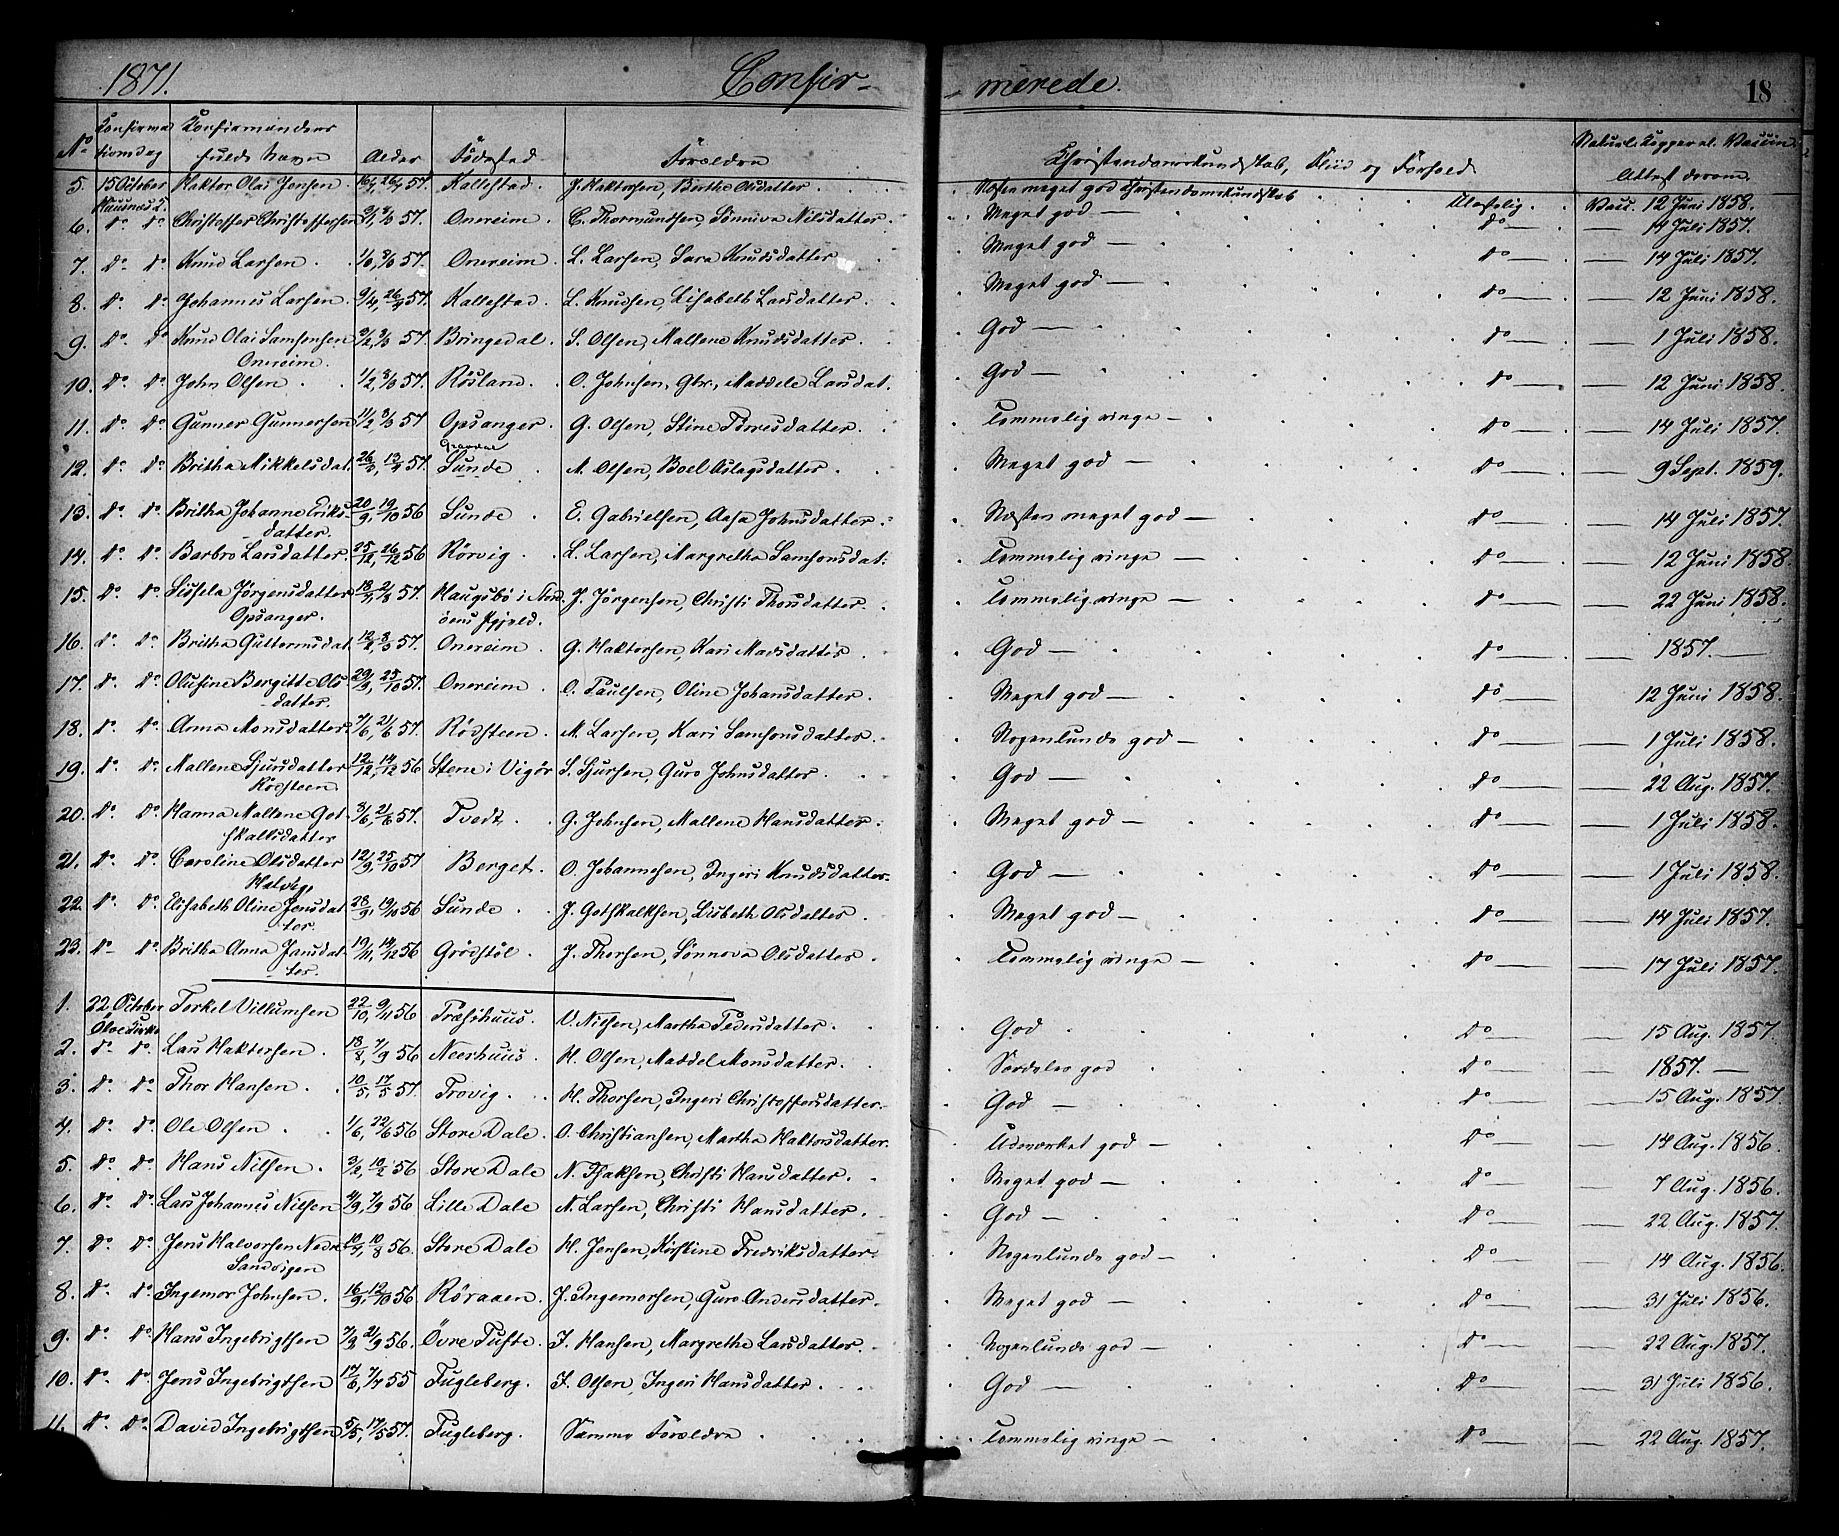 1871. Confir- - merede. 18
No Konfirma Konfirmandens Naturl. Kopper el. Vaccin.
tionsdag fulde Navn Alder Födested Forældre Christendomskundskab, Flid og Forhold Attest derom.
5. 15 October Haktor Olai Jensen. 57. Kallestad. J. Haktorsen, Bertha Olsdatter. Næsten meget god Christendomskundskab Ulastelig. Vacc. 12 Juni 1858.
6. do do Christoffer Christoffersen 57. Onereim. C. Thormundsen, Sönniva Nilsdatter. Meget god — do — 14 Juli 1857.
7. do do Knud Larsen. 57. Onereim. L. Larsen, Sara Knudsdatter Meget god — do — 14 Juli 1857.
8. do do Johannes Larsen. 9/4, 26/4 57. Kallestad. L. Knudsen, Lisabeth Larsdatter. Meget god — do — 12 Juni 1858.
9. do do Knud Olai Samsonsen 57. Bringedal. S. Olsen, Mallene Knudsdatter. God — do — 1 Juli 1858.
Onereim.
10. do do John Olsen. 1/2, 8/3 57. Røsland. O. Johnsen, Gbr., Maddele Larsdat. God — do — 12 Juni 1858.
11. do do Gunner Gunnersen 11/2, 8/3 57 Opsanger. G. Olsen, Stine Torresdatter. Temmelig ringe — do — 14 Juli 1857.
12. do do Britha Mikkelsdat. 26/3, 13/4 57. Sunde M. Olsen, Boel Aslagsdatter. Meget god — do — 9 Sept. 1859.
13. do do Britha Johanne Eriks- 20/9, 19/10 56 Sunde. E. Gabrielsen, Aasa Johnsdatter. Næsten meget god — do — 14 Juli 1857.
datter.
14. do do Barbro Larsdatter. 25/12, 26/12 56 Rörvig. L. Larsen, Margretha Samsonsdat. Temmelig ringe — do — 12 Juni 1858
15. do do Sissela Jörgensdatter 57. Haugsbö i J. Jörgensen, Christi Thorsdatter. Temmelig ringe — do — 22 Juni 1858.
Opsanger.
16. do do Britha Guttormsdat. 12/2, 8/3 57. Onereim. G. Haktorsen, Kari Madsdatter. God — do — 1857. —
17. do do Olufine Bergitte Ols 29/9, 25/10 57. Onereim. O. Paulsen, Oline Johansdatter. Meget god — do — 12 Juni 1858.
-datter.
18. do do Anna Monsdatter. 7/6, 21/6 57. Rödsteen. M. Larsen, Kari Samsonsdatter. Nogenlunde god — do — 1 Juli 1858.
19. do do Mallene Sjursdatter 12/12, 14/12 56 Stene i Vigör S. Sjursen, Guro Johnsdatter. God — do — 22 Aug. 1857.
Rödsteen
20. do do Hanna Mallene Got 3/6, 21/6 57. Tvedt. G. Johnsen, Mallene Hansdatter. Meget god — do — 1 Juli 1858.
skalksdatter
21. do do Caroline Olsdatter 12/9, 25/10 57 Berget. O. Johannesen, Ingeri Knudsdatter. God — do — 1 Juli 1858.
Halvig.
22. do do Elisabeth Oline Jensdat 28/9, 19/10 56 Sunde. J. Gotskalksen, Lisbeth Olsdatter. Meget god — do — 14 Juli 1857.
ter.
23. do do Britha Anna Jansdat- 19/11, 14/12 56 Grödstöl. J. Thorsen, Sönnova Olsdatter. Temmelig ringe — do — 17 Juli 1857.
-ter.
1. 22 October Torkel Villumsen 22/10, 9/11 56 Træshuus. V. Nilsen, Martha Pedersdatter. God do — 15 Aug. 1857.
Ölve Kirke
2. do do Lars Haktorsen. 18/8, 7/9 56 Neerhuus. H. Olsen, Maddel Monsdatter. Særdeles god do — 1857. —
3. do do Thor Hansen. 10/5, 17/5 57. Trovig. H. Thorsen, Ingeri Christoffersdatter. God — do — 15 Aug. 1857
4. do do Ole Olsen. 1/6, 22/6 56 Store Dale. O. Christiansen, Martha Haktorsdatter. Udmærket god — do — 14 Aug. 1856.
5. do do Hans Nilsen. 3/2, 10/2 56 Store Dale N. Isaksen, Christi Hansdatter. Meget god — do — 7 Aug. 1856.
6. do do Lars Johannes Nilsen 4/9, 7/9 56 Lille Dale N. Larsen, Christi Hansdatter. God — do — 22 Aug. 1857.
7. do do Jens Halvorsen Nedre 56. Store Dale H. Jensen, Kirstine Fredriksdatter. Nogenlunde god — do — 14 Aug. 1856.
Sandvigen
8. do do Ingemor Johnsen. 16/9, 12/10 56 Röraaen. J. Ingemorsen, Guro Andersdatter. Meget god — do — 31 Juli 1856.
9. do do Hans Ingebrigtsen 56. Övre Tufte. I. Hansen, Margretha Larsdatter. Nogenlunde god — do — 22 Aug. 1857.
10. do do Jens Ingebrigtsen 55 Fugleberg. I. Olsen, Ingeri Hansdatter. God — do — 31 Juli 1856.
11. do do David Ingebrigtsen 5/5, 17/5 57. Fugleberg. Samme Forældre Temmelig ringe — do — 22 Aug. 1857.